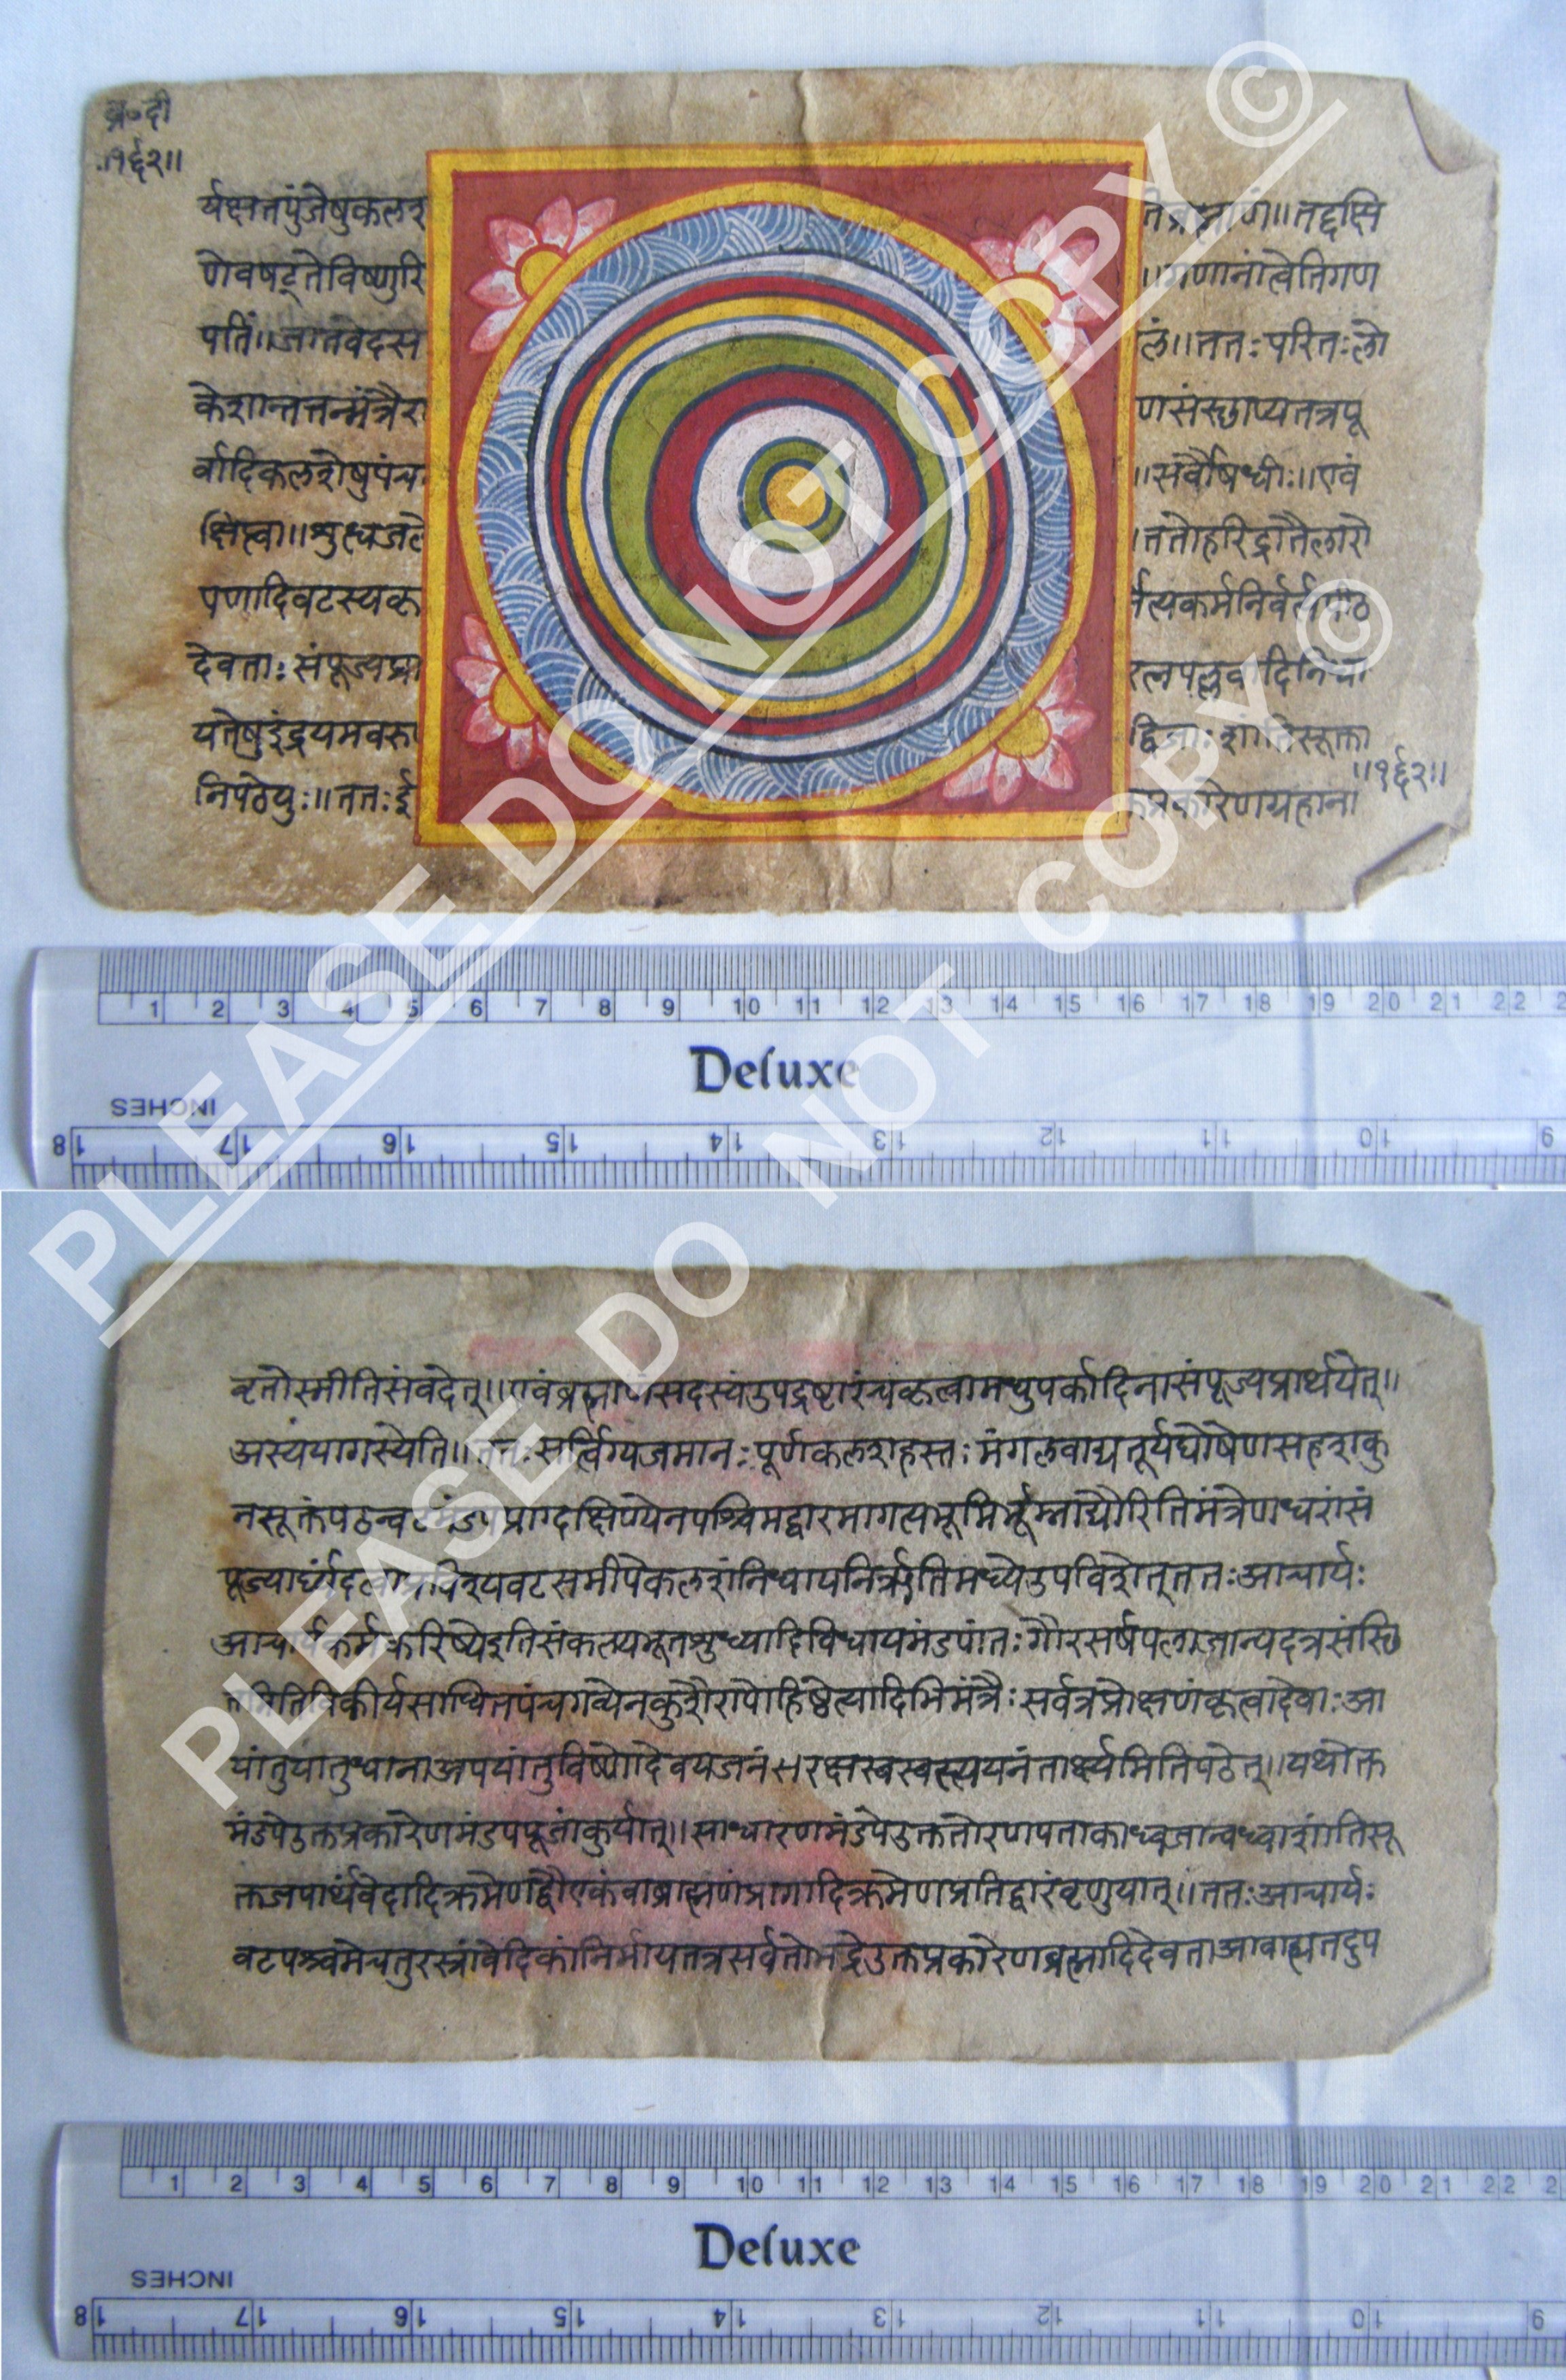 व्र॰दी
॥१६२॥
र्यक्षतपुंजेषुकलश
तिब्रह्माणं॥तद्दक्षि
णेवषट्तेविष्णुरि
॥गणानांत्वेतिगण
पतिं॥जातवेदस
लं॥ततःपरितःलो
केशान्तत्तन्मंत्रैरा
णसंस्छाप्यतत्रपू
र्वादिकलशेषुपंच
॥सर्वौषधीः॥एवं
क्षिप्त्वा॥शुत्धजले
।ततोहरिद्रातैलारो
पणादिवटस्यकृ
देवताःसंपूज्यप्रा
यतेषुइंद्रयमवरु
द्विजाःशांतिसूक्ता
निपठेयुः॥ततःई
क्तप्रकारेणग्रहाना
॥१६२॥
1 2 3 4 5 6 7 8 9 10 11 12 13 14 15 16 17 18 19 20 21 22
Deluxe
INCHES
18 17 16 15 14 13 12 11 10 9
वृतोस्मीतिसंवदेत्॥एवंब्रह्माणंसदस्यंउपद्रष्टारंचकृत्वामधुपर्कादिनासंपूज्यप्रार्थयेत्॥
अस्ययागस्येति॥ततःसर्त्विग्यजमानःपूर्णकलशहस्तःमंगलवाद्यतूर्यघोषेणसहशकु
नसूक्तंपठन्वटमंडपंप्राग्दक्षिण्येनपश्चिमद्वारमागत्यभूमिर्भूम्नाद्यौरितिमंत्रेणधरांसं
पूज्यार्घ्यंदत्वाप्रविश्यवटसमीपेकलशंनिधायनिर्ऋतिमध्येउपविशेत्ततःआचार्यः
आचार्यकर्मकरिष्येइतिसंकल्प्यभूतशुध्यादिविधायमंडपांतःगौरसर्षपलाजान्यदत्रसंस्छि
तमितिविकीर्यसाधितपंचगव्येनकुशैरापोहिष्ठेत्यादिभिमंत्रैःसर्वत्रप्रोक्षणंकृत्वादेवाःआ
यांतुयातुधानाअपयांतुविष्णोदेवयजनंरक्षस्वस्वस्त्ययनंतार्क्ष्यमितिपठेत्॥यथोक्त
मंडपेउक्तप्रकारेणमंडपपूजांकुर्यात्॥साधारणमंडपेउक्ततोरणपताकाध्वजान्बध्वाशांतिसू
क्तजपार्थंवेदादिक्रमेणद्वौएकंवाब्राह्मणंप्रागादिक्रमेणप्रतिद्वारंवृणुयात्॥ततःआचार्यः
वटपश्चिमेचतुरस्त्रांवेदिकांनिर्मायतत्रसर्वतोभद्रेउक्तप्रकारेणब्रह्मादिदेवताआवाह्यतदुप
1 2 3 4 5 6 7 8 9 10 11 12 13 14 15 16 17 18 19 20 21 22
Deluxe
INCHES
18 17 16 15 14 13 12 11 10 9
PLEASE DO NOT COPY ©
PLEASE DO NOT COPY ©